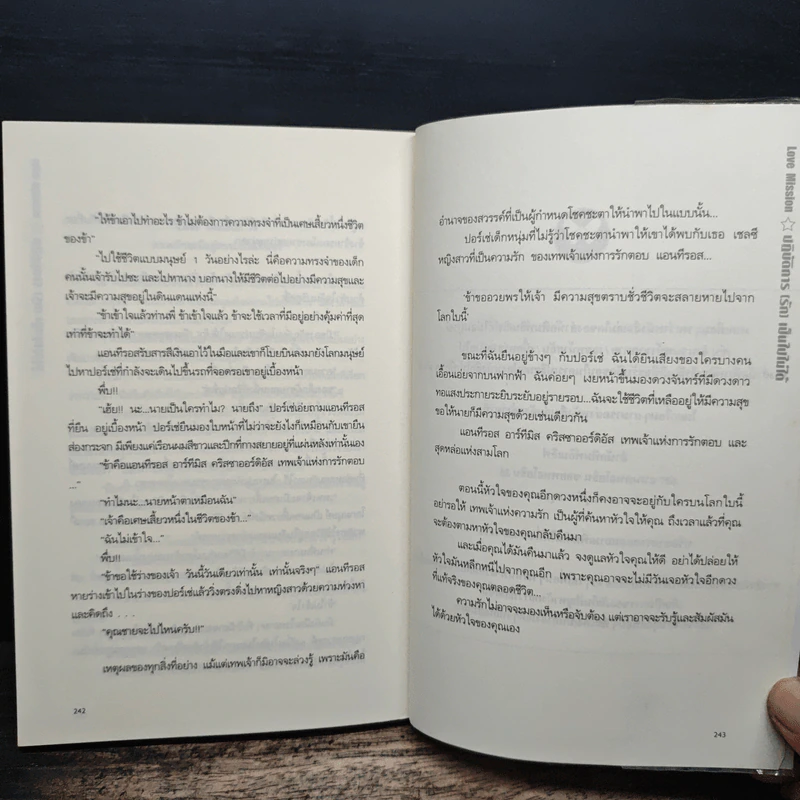 "ให้ข้าเอาไปทำอะไร ข้าไม่ต้องการความทรงจำที่เป็นเศษเสี้ยวหนึ่งชีวิต
ของข้า"
"ไปใช้ชีวิตแบบมนุษย์ 1 วันอย่างไรล่ะ นี่คือความทรงจำของเด็ก
คนนั้นเจ้ารับไปซะ และไปหานาง บอกนางให้มีชีวิตต่อไปอย่างมีความสุขและ
เจ้าจะมีความสุขอยู่ในดินแดนแห่งนี้"
"ข้าเข้าใจแล้วท่านพี่ ข้าเข้าใจแล้ว ข้าจะใช้เวลาที่มีอยู่อย่างคุ้มค่าที่สุด
เท่าที่ข้าจะทำได้"
แอนทีรอสรับสารสีเงินเอาไว้ในมือและเขาก็โบยบินลงมายังโลกมนุษย์
ไปหาปอร์เช่ที่กำลังจะเดินไปขึ้นรถที่จอดรอเขาอยู่เบื้องหน้า
พึ่บ!!
"เฮ้ย!! นะ...นายเป็นใครทำไม? นายถึง" ปอร์เช่เอ่ยถามแอนทีรอส
ที่ยืน อยู่เบื้องหน้า ปอร์เช่ยืนมองใบหน้าที่ไม่ว่าจะยังไงก็เหมือนกับเขายืน
ส่องกระจก มีเพียงแค่เรือนผมสีขาวและปีกที่กางสยายอยู่ที่แผ่นหลังเท่านั้นเอง
"ข้าคือแอนทีรอส อาร์ทีมิส คริสซาออร์ดิอัส เทพเจ้าแห่งการรักตอบ
..."
"ทำไมนะ...นายหน้าตาเหมือนฉัน"
"เจ้าคือเศษเสี้ยวหนึ่งในชีวิตของข้า..."
"ฉันไม่เข้าใจ..."
พึ่บ!!
"ข้าขอใช้ร่างของเจ้า วันนี้วันเดียวเท่านั้น เท่านั้นจริงๆ" แอนทีรอส
หายร่างเข้าไปในร่างของปอร์เช่แล้ววิ่งตรงดิ่งไปหาหญิงสาวด้วยความห่วงหา
และคิดถึง . . .
"คุณชายจะไปไหนครับ!!"
เหตุผลของทุกสิ่งที่อย่าง แม้แต่เทพเจ้าก็มิอาจจะล่วงรู้ เพราะมันคือ
242
อำนาจของสวรรค์ที่เป็นผู้กำหนดโชคชะตาให้นำพาไปในแบบนั้น...
ปอร์เช่เด็กหนุ่มที่ไม่รู้ว่าโชคชะตานำพาให้เขาได้พบกับเธอ เชลซี
หญิงสาวที่เป็นความรัก ของเทพเจ้าแห่งการรักตอบ แอนทีรอส...
'ข้าขออวยพรให้เจ้า มีความสุขตราบชั่วชีวิตจะสลายหายไปจาก
โลกใบนี้'
ขณะที่ฉันยืนอยู่ข้างๆ กับปอร์เช่ ฉันได้ยินเสียงของใครบางคน
เอื้อนเอ่ยจากบนฟากฟ้า ฉันค่อยๆ เงยหน้าขึ้นมองดวงจันทร์ที่มีดวงดาว
ทอแสงประกายระยิบระยับอยู่รายรอบ...ฉันจะใช้ชีวิตที่เหลืออยู่ให้มีความสุข
ขอให้นายก็มีความสุขด้วยเช่นเดียวกัน
แอนทีรอส อาร์ทีมิส คริสซาออร์ดิอัส เทพเจ้าแห่งการรักตอบ และ
สุดหล่อแห่งสามโลก
ตอนนี้หัวใจของคุณอีกดวงหนึ่งก็คงอาจจะอยู่กับใครบนโลกใบนี้
อย่ารอให้ เทพเจ้าแห่งความรัก เป็นผู้ที่ค้นหาหัวใจให้คุณ ถึงเวลาแล้วที่คุณ
จะต้องตามหาหัวใจของคุณกลับคืนมา
และเมื่อคุณได้มันคืนมาแล้ว จงดูแลหัวใจคุณให้ดี อย่าได้ปล่อยให้
หัวใจมันหลีกหนีไปจากคุณอีก เพราะคุณอาจจะไม่มีวันเจอหัวใจอีกดวง
ที่แท้จริงของคุณตลอดชีวิต...
ความรักไม่อาจจะมองเห็นหรือจับต้อง แต่เราอาจจะรับรู้และสัมผัสมัน
ได้ด้วยหัวใจของคุณเอง
243
Love Mission ☆ ปฏิบัติการ (รัก) เป็นไปไม่ได้